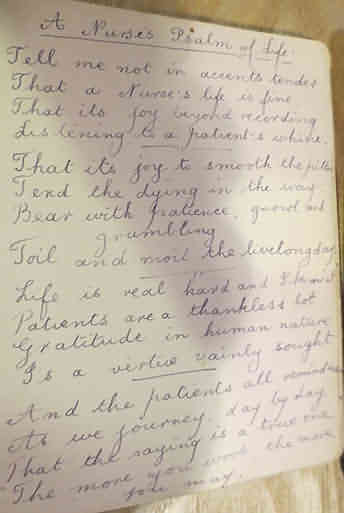 A Nurse's Psalm of Life
Tell me not in accents tender
That a Nurse's life is fine
That its joy beyond recording
listening to a patient's whine.
That its joy to smooth the pillow
Tend the dying in the way
Bear with patience, and
grumbling
Toil and moil the livelong day.
Life is real hard and
Patients are a thankless lot
Gratitude in human nature
Is a virtue vainly sought
And the patients all remind
As we journey, day by day
That the saying is a true one
The more you work the more
you may.